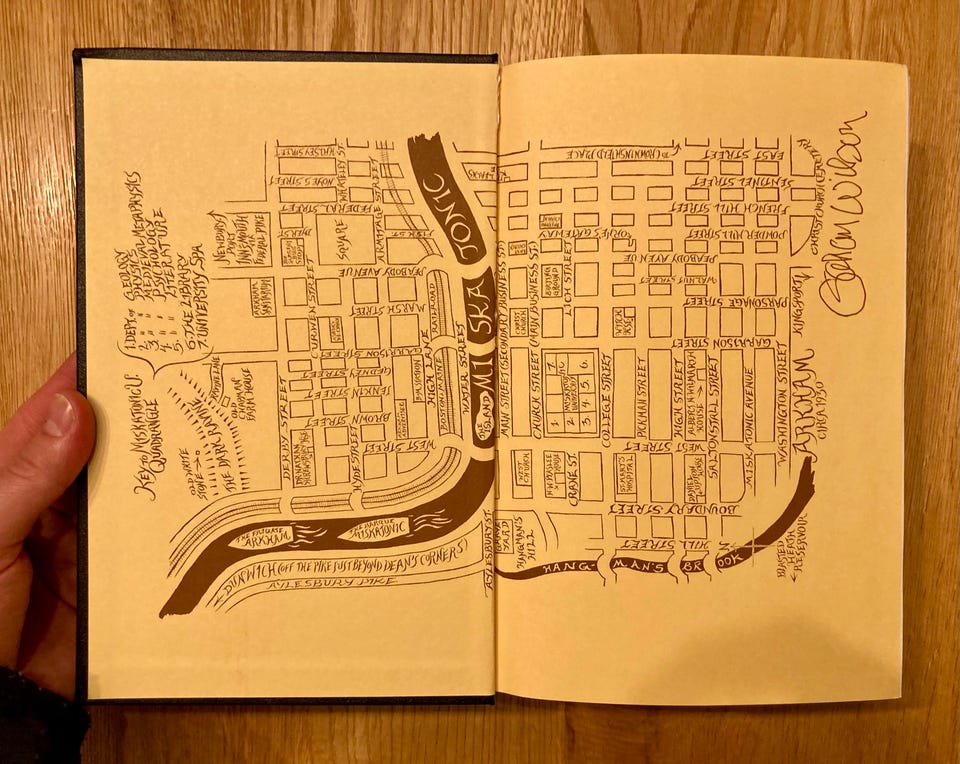 KEY TO MISKATONIC U.
QUADRANGLE
1. DEPT. OF GEOLOGY
2. " " PHYSICS
3. " " MEDIEVAL METAPHYSICS
4. " " PSYCHOLOGY
5. " " LITERATURE
6. THE LIBRARY
7. UNIVERSITY SPA
OLD WHITE
STONE
THE DARK RAVINE
OLD
CHAPMAN
FARM HOUSE
NEWBURYPORT
INNSMOUTH
FEDERAL PIKE
ARKHAM
SANITARIUM
HALSEY STREET
NOYES STREET
WHATELEY ST.
FEDERAL STREET
ARMITAGE STREET
DYER ST.
SQUARE
FISH ST.
PEABODY AVENUE
CURWEN STREET
MARSH STREET
GARRISON STREET
GEDNEY STREET
JENKIN STREET
BROWN STREET
DERBY STREET
WEST STREET
HYDE STREET
R.R. STATION
HIGH LANE
BOSTON & MAINE
RAILROAD
WATER STREET
THE
ISLAND
MISKATONIC
THE BARQUE
MISKATONIC
ARKHAM
DUNWICH (OFF THE PIKE JUST BEYOND DEAN'S CORNERS)
AYLESBURY PIKE
AYLESBURY ST.
GRAVE
YARD
HANGMAN'S
HILL
HANGMAN'S BROOK
MAIN STREET (SECONDARY BUSINESS ST.)
CHURCH STREET (MAIN BUSINESS ST.)
LICH STREET
COLLEGE STREET
CRANE ST.
PICKMAN STREET
HIGH STREET
SALTONSTALL STREET
MISKATONIC AVENUE
WASHINGTON STREET
CROWNINSHIELD PLACE
EAST STREET
SENTINEL STREET
FRENCH HILL STREET
POWDER MILL STREET
PEABODY AVENUE
WALNUT STREET
PARSONAGE STREET
GARRISON STREET
WEST STREET
BOUNDARY STREET
HILL STREET
CHRISTCHURCH CEMETERY
BURYING
GROUND
CHRIST
CHURCH
WITCH
HOUSE
MISKATONIC
UNIVERSITY
1. 2. 3. 4. 5. 6. 7.
WEST
CHURCH
ST. MARY'S
HOSPITAL
DANIEL
UPTON
HOUSE
KINGSPORT
BLASTED
HEATH
RESERVOIR
ARKHAM
CIRCA 1930
Gahan Wilson